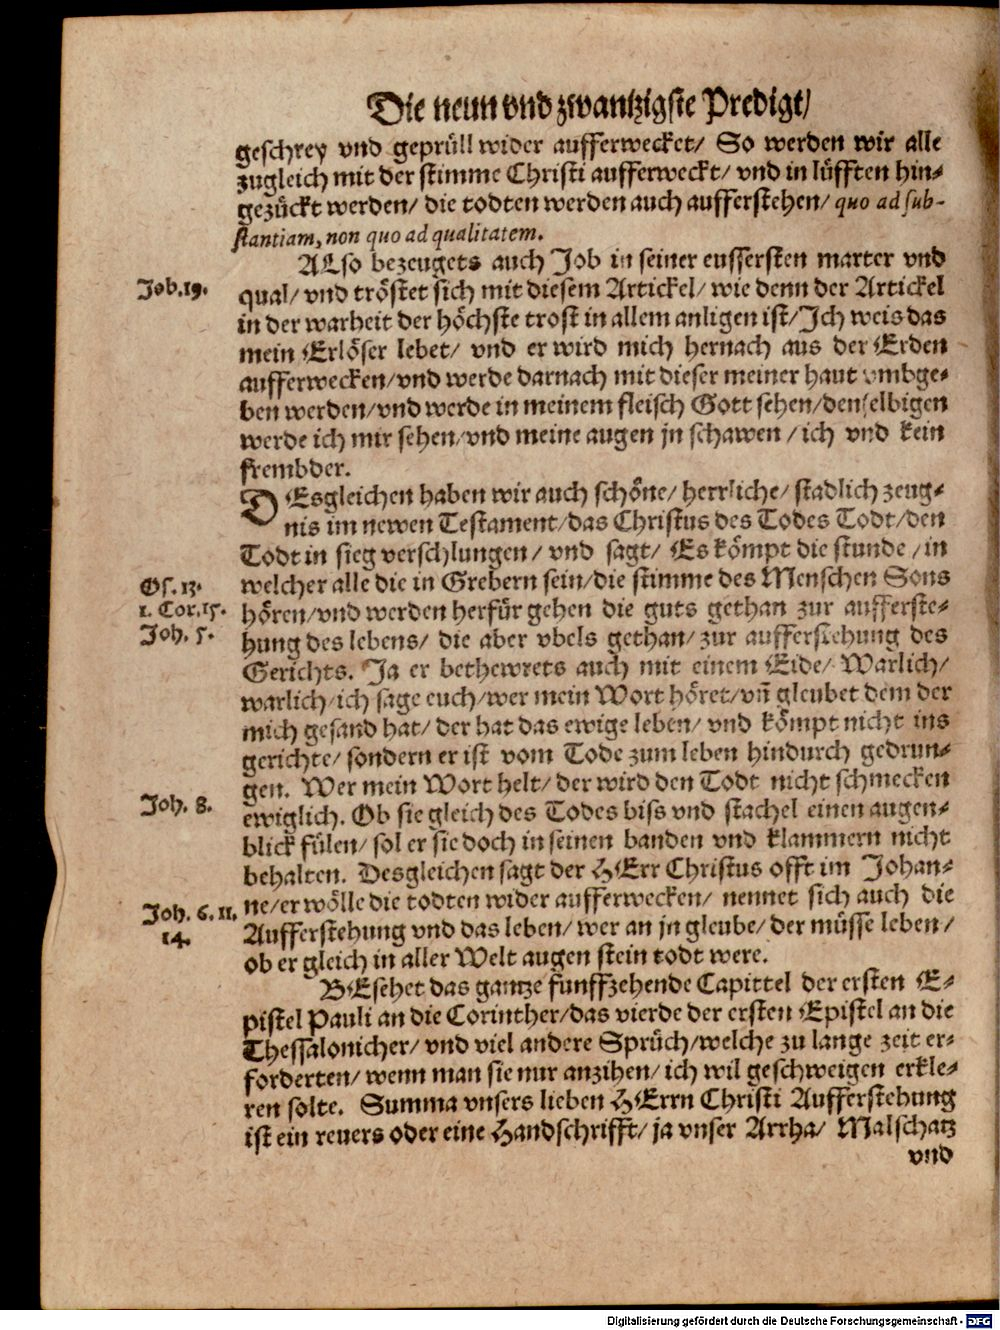 Die neun vnd zwantzigste Predigt/
geschrey vnd geprüll wider aufferwecket/ So werden wir alle
zugleich mit der stimme Christi aufferweckt/ vnd in lüfften hin-
gezückt werden/ die todten werden auch aufferstehen/ quo ad sub-
stantiam, non quo ad qualitatem.
ALso bezeugets auch Job in seiner eussersten marter vnd
Job.19.
qual/ vnd tröstet sich mit diesem Artickel/ wie denn der Artickel
in der warheit der höchste trost in allem anligen ist/ Ich weis das
mein Erlöser lebet/ vnd er wird mich hernach aus der Erden
aufferwecken/ vnd werde darnach mit dieser meiner haut vmbge-
ben werden/ vnd werde in meinem fleisch Gott sehen/ denselbigen
werde ich mir sehen/ vnd meine augen jn schawen/ ich vnd kein
frembder.
DEsgleichen haben wir auch schöne/ herrliche/ stadlich zeug-
nis im newen Testament/ das Christus des Todes Todt/ den
Todt in sieg verschlungen/ vnd sagt/ Es kömpt die stunde/ in
Os. 13.
welcher alle die in Grebern sein/ die stimme des Menschen Sons
1. Cor.15.
hören/ vnd werden herfür gehen die guts gethan zur aufferste-
Joh. 5.
hung des lebens/ die aber vbels gethan/ zur aufferstehung des
Gerichts. Ja er bethewrets auch mit einem Eide/ Warlich/
warlich/ ich sage euch/ wer mein Wort höret/ vñ gleubet dem der
mich gesand hat/ der hat das ewige leben/ vnd kömpt nicht ins
gerichte/ sondern er ist vom Tode zum leben hindurch gedrun-
gen. Wer mein Wort helt/ der wird den Todt nicht schmecken
Joh. 8.
ewiglich. Ob sie gleich des Todes biss vnd stachel einen augen-
blick fülen/ sol er sie doch in seinen banden vnd klammern nicht
behalten. Desgleichen sagt der HErr Christus offt im Johan-
Joh. 6. 11.
ne/ er wölle die todten wider aufferwecken/ nennet sich auch die
14.
Aufferstehung vnd das leben/ wer an jn gleube/ der müsse leben/
ob er gleich in aller Welt augen stein todt were.
BEsehet das gantze funffzehende Capittel der ersten E-
pistel Pauli an die Corinther/ das vierde der ersten Epistel an die
Thessalonicher/ vnd viel andere Sprüch/ welche zu lange zeit er-
forderten/ wenn man sie nur anzihen/ ich wil geschweigen erkle-
ren solte. Summa vnsers lieben HErrn Christi Aufferstehung
ist ein reuers oder eine Handschrifft/ ja vnser Arrha/ Malschatz
vnd
Digitalisierung gefördert durch die Deutsche Forschungsgemeinschaft - DFG